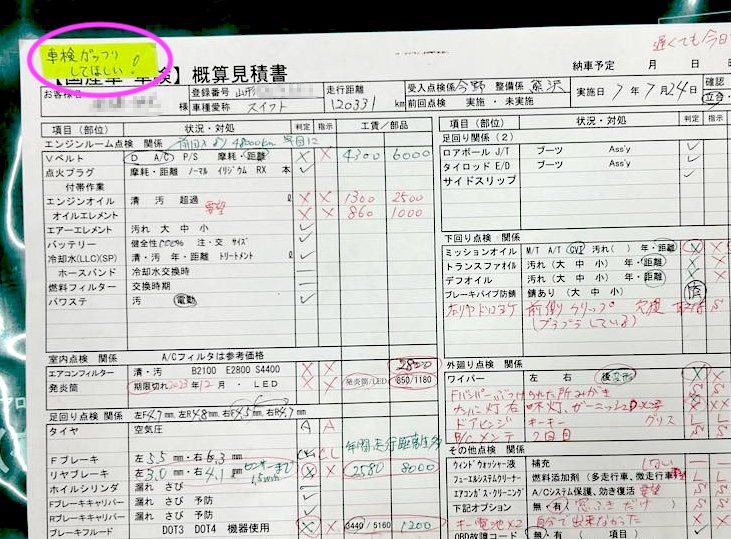 車検ガッツリ
してほしい!
遅くても今日
検】概算見積書
納車予定 月 日
お客様名 様
登録番号 山形
車種愛称 スイフト
走行距離
120331 km
受入点検係 今野 整備係 熊沢
前回点検 実施・未実施
実施日 7年7月24日
確認
立合
項目（部位） 状況・対処 判定 指示 工賃/部品
エンジンルーム点検 関係
Vベルト D A/C P/S 摩耗・距離 X X 4300 6000
点火プラグ 摩耗・距離 ノーマル イリジウム RX 本
付帯作業
エンジンオイル 清 汚 超過 要望 X X 1300 2500
オイルエレメント X X 860 1000
エアーエレメント 汚れ 大 中 小
バッテリー 健全性100% 注・交 サイズ
冷却水(LLC)(SP) 清・汚 年・距離 トリートメント ℓ
ホースバンド 冷却水交換時
燃料フィルター 交換時期
パワステ 汚 電動
室内点検 関係 A/Cフィルタは参考価格
エアコンフィルター 清・汚 B2100 E2800 S4400 X X 2800
発炎筒 期限切れ2023年12月・LED X X 発炎筒/LED 850/1180
足回り点検 関係 左F4.7mm, 左R4.8mm, 右F4.5mm, 右R4.7mm
タイヤ 空気圧 A A
年間走行距離多
Fブレーキ 左5.5mm・右6.3mm
リヤブレーキ 左3.0mm・右4.1mm X X 2580 8000
センサーまで
1.5mm
ホイルシリンダ 漏れ さび
Fブレーキキャリパー 漏れ さび 予防
Rブレーキキャリパー 漏れ さび 予防
ブレーキフルード DOT3 DOT4 機器使用 X X 3440/5160 1200
項目（部位） 状況・対処 判定 指示
足回り関係（2）
ロアボールJ/T ブーツ Ass'y
タイロッドE/D ブーツ Ass'y
サイドスリップ
下回り点検 関係
ミッションオイル M/T A/T CVT 汚れ( ) 年・距離 X
トランスファオイル 汚れ（大 中 小） 年・距離 X
デフオイル 汚れ（大 中 小） 年・距離 X
ブレーキパイプ防錆 錆あり（大 中 小） 済
前側クリップ 欠損
(ブラブラしている)
外廻り点検 関係
ワイパー 左 右 後 X
ドアヒンジ キーキー グリス
2回目
その他点検 関係
ウィンドウォッシャー液 補充 しない
フューエルシステムクリーナー 燃料添加剤（多走行車、微走行車） L
エアコンガス・クリーニング A/Cシステム保護、効き復活 要望
下記オプション 無・有（窓ふきだけ）
キー電池×2 自分で出来なかった X
OBD故障コード 無・有（ 項目）